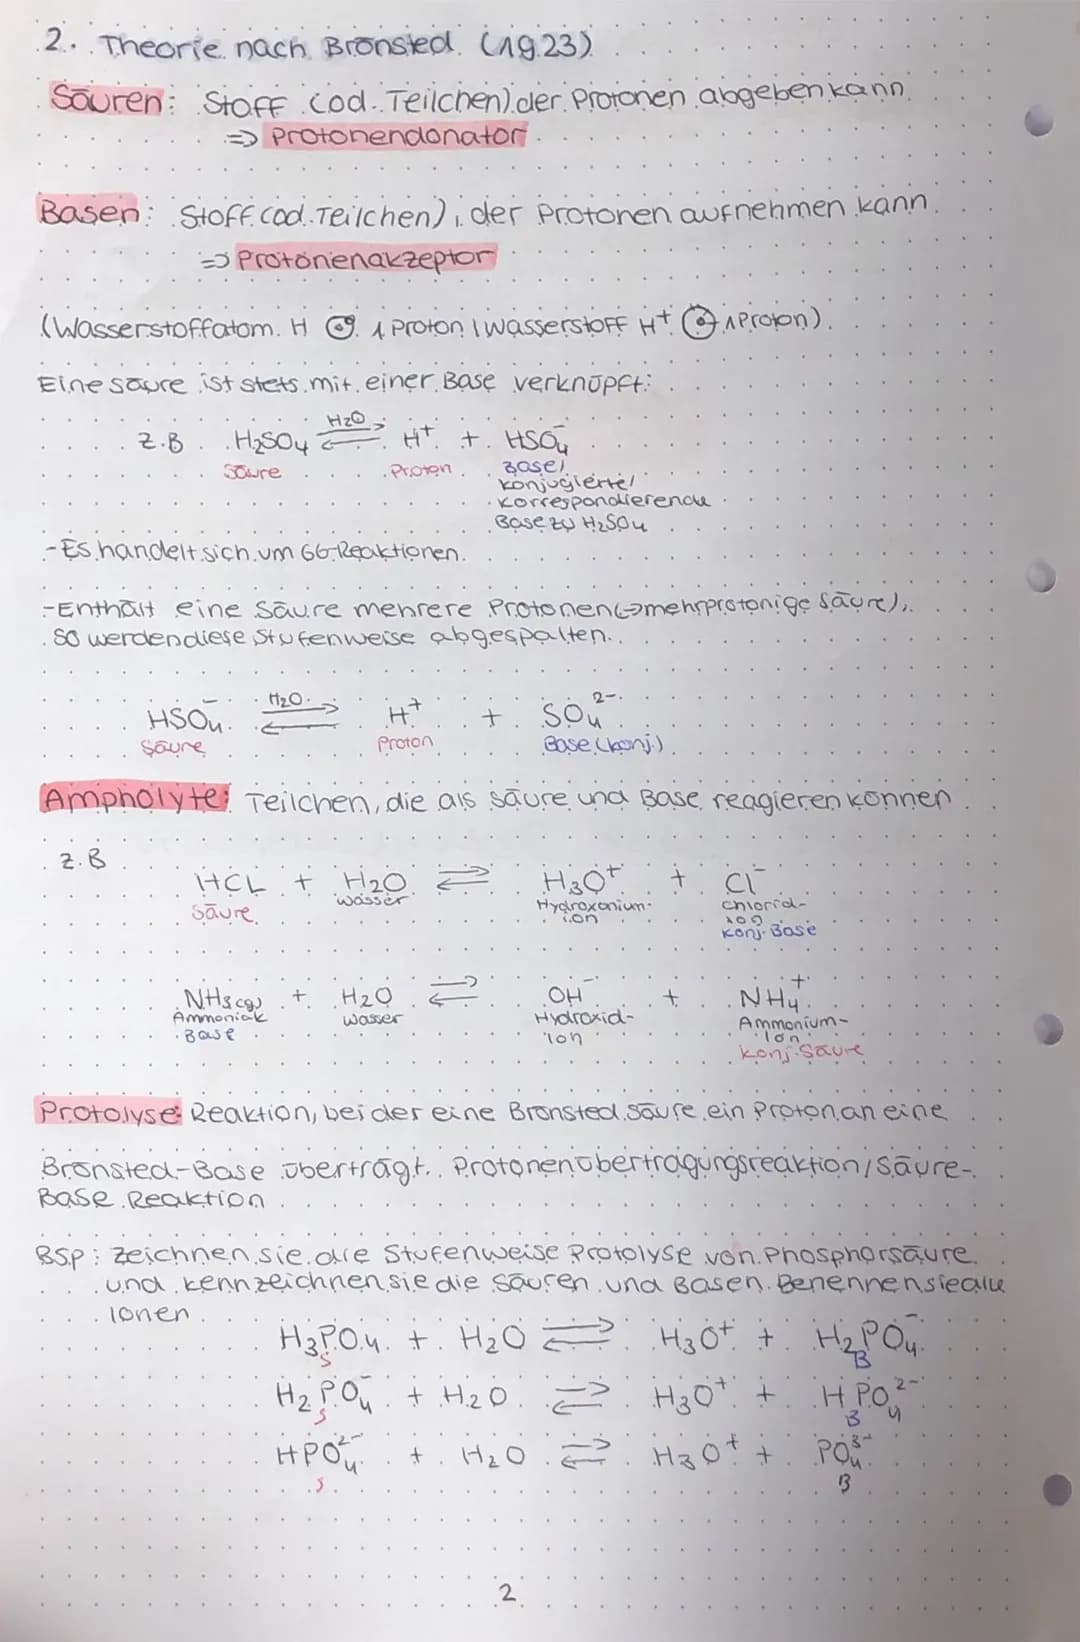 2. Theorie nach Bronsted (1923)
Säuren: Stoff (od. Teilchen) der Protonen abgeben kann
=> Protonendonator
Basen: Stoff (od. Teilchen), der Protonen aufnehmen kann
=> Protonenakzeptor
(Wasserstoffatom H 1 Proton | Wasserstoff H⁺ 1 Proton)
Eine Säure ist stets mit einer Base verknüpft:
z.B H₂SO₄ ⇌ H₂O H⁺ + HSO₄⁻
Säure Proton Base/
konjugierte/
korrespondierende
Base zu H₂SO₄
- Es handelt sich um GG-Reaktionen.
- Enthält eine Säure mehrere Protonen (→mehrprotonige Säure),
so werden diese stufenweise abgespalten.
HSO₄⁻ ⇌ H₂O H⁺ + SO₄²⁻
Säure Proton Base (konj.)
Ampholyte: Teilchen, die als Säure und Base reagieren können
z.B
HCL + H₂O ⇌ H₃O⁺ + Cl⁻
Säure Wasser Hydroxonium- Chlorid-
ion ion
konj. Base
NH₃(g) + H₂O ⇌ OH⁻ + NH₄⁺
Ammoniak Wasser Hydroxid- Ammonium-
Base ion Ion
konj. Säure
Protolyse: Reaktion, bei der eine Bronsted Säure ein Proton an eine
Bronsted-Base überträgt. Protonenübertragungsreaktion/Säure-
Base Reaktion
BSP: Zeichnen sie die Stufenweise Protolyse von Phosphorsäure
und kennzeichnen sie die Säuren und Basen. Benennen sie alle
Ionen
H₃PO₄ + H₂O ⇌ H₃O⁺ + H₂PO₄⁻
S B
H₂PO₄⁻ + H₂O ⇌ H₃O⁺ + HPO₄²⁻
S B
HPO₄²⁻ + H₂O ⇌ H₃O⁺ + PO₄³⁻
S B
2